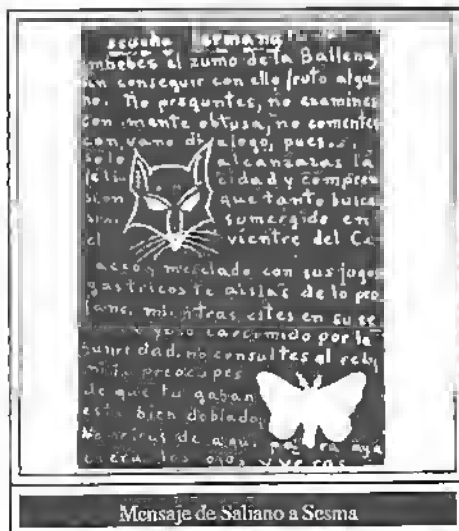 escucha hermano tu que
embebes el zumo de la Ballena
sin conseguir con ello fruto algu
no. No preguntes, no examines
con mente obtusa, no comentes
con vano dialogo, pues
solo alcanzaras la
felici cidad y compren
sion que tanto buscas
sumergido en
el vientre del Ca
mezclado con sus jugos
gastricos te aislas de lo pro
fano. mientras estes en su se
carcomido por la
no consultes al reloj
ni te preocupes
de que tu gaban
este bien doblado,
de aqui para
los ojos y veras
Mensaje de Saliano a Sesma